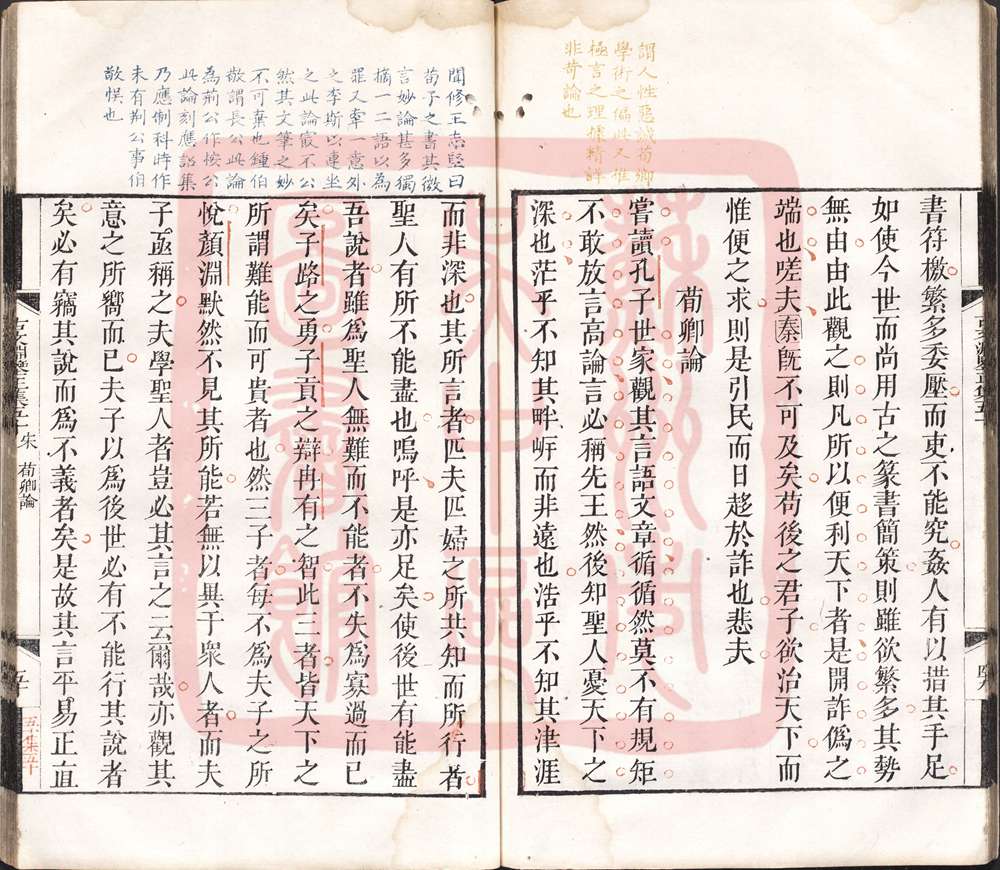 謂人性惡誠荀卿
學術之偏此又推
極言之理據精詳
非苛論也
書符檄繁多委壓而吏不能究姦人有以措其手足
如使今世而尚用古之篆書簡策則雖欲繁多其勢
無由由此觀之則凡所以便利天下者是開詐僞之
端也嗟夫秦旣不可及矣苟後之君子欲治天下而
惟便之求則是引民而日趍於詐也悲夫
荀卿論
嘗讀孔子世家觀其言語文章循循然莫不有規矩
不敢放言高論言必稱先王然後知聖人憂天下之
深也茫乎不知其畔岸而非遠也浩乎不知其津涯
閒修王志堅曰
荀子之書其微
言妙論甚多獨
摘一二語以為
罪又牽一意外
之李斯以連坐
之此論寂不公
然其文筆之妙
不可棄也鍾伯
敬謂長公此論
為荊公作按公
此論刻應詔集
乃應制科時作
未有荆公事伯
敬悞也
而非深也其所言者匹夫匹婦之所共知而所行者
聖人有所不能盡也嗚呼是亦足矣使後世有能盡
吾說者雖爲聖人無難而不能者不失爲寡過而已
矣子路之勇子貢之辯冉有之智此三者皆天下之
所謂難能而可貴者也然三子者每不爲夫子之所
悅顏淵默然不見其所能若無以異于衆人者而夫
子亟稱之夫學聖人者豈必其言之云爾哉亦觀其
意之所嚮而已夫子以爲後世必有不能行其說者
矣必有竊其說而爲不義者矣是故其言平易正直
朱 荀卿論
五十
五集五十